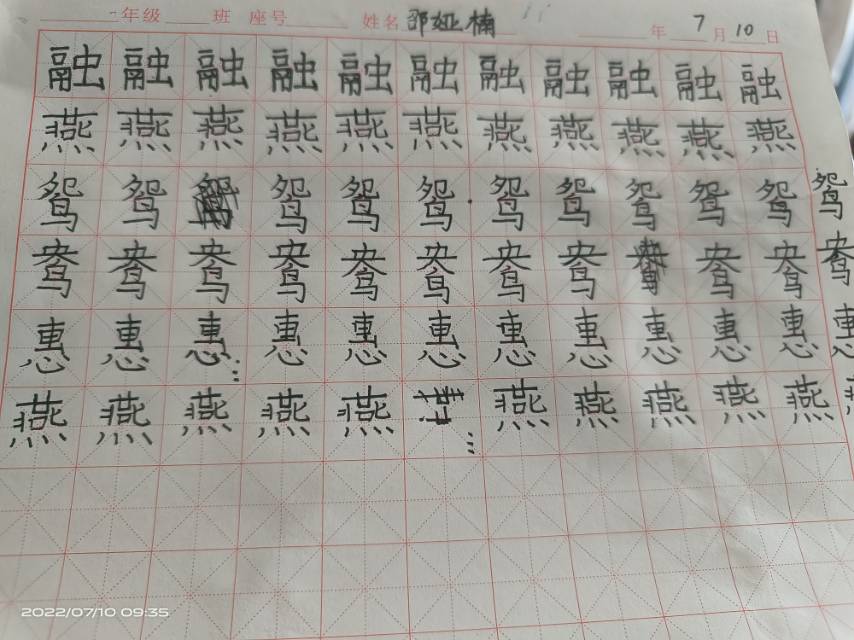 年级 班 座号 姓名 邵娅楠 年 7 月 10 日
融 融 融 融 融 融 融 融 融 融 融
燕 燕 燕 燕 燕 燕 燕 燕 燕 燕 燕
鸳 鸳 鸳 鸳 鸳 鸳 鸳 鸳 鸳 鸳 鸳
鸯 鸯 鸯 鸯 鸯 鸯 鸯 鸯 鸯 鸯 鸯
惠 惠 惠 ... 惠 惠 惠 惠 惠 惠 惠 惠 惠
燕 燕 燕 燕 燕 ... 燕 燕 燕 燕 燕
2022/07/10 09:35